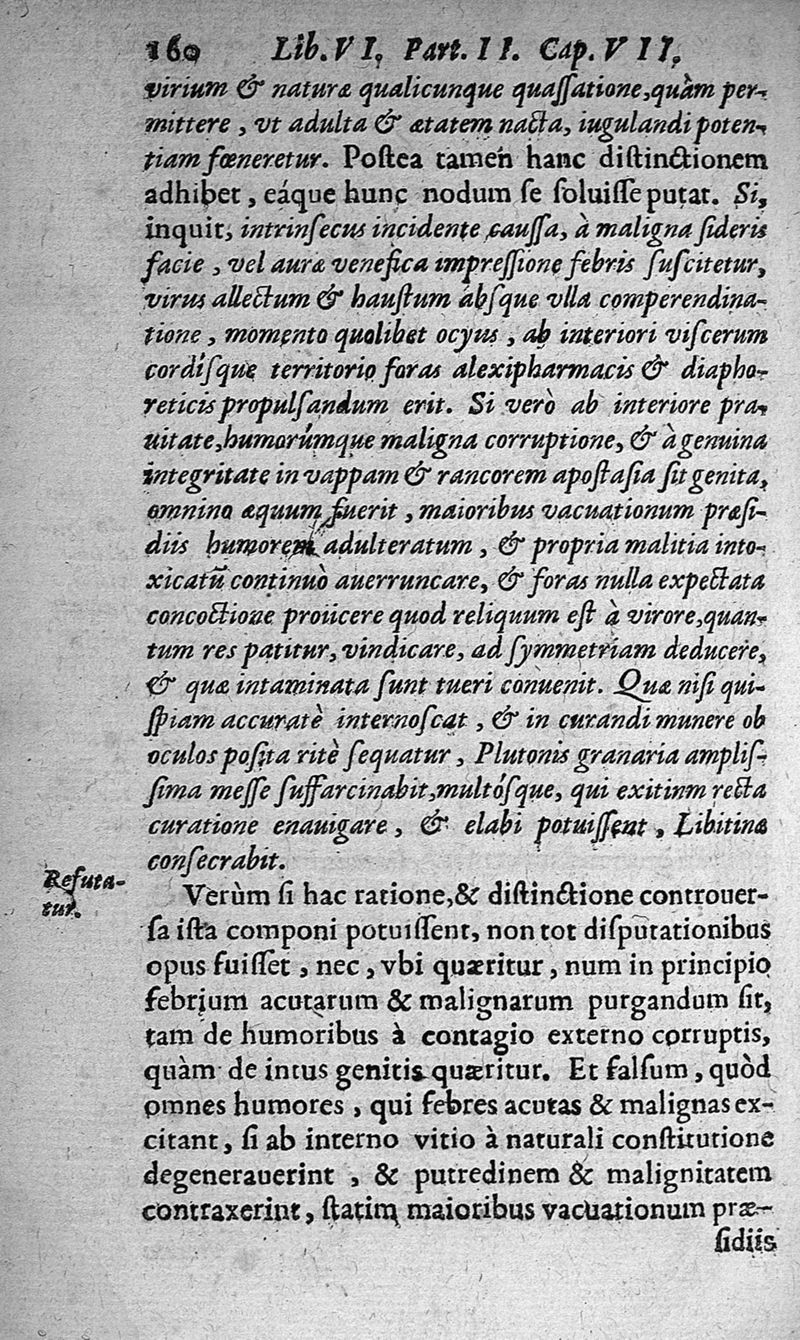 160 Lib. VI. Part. II. Cap. VII.
virium & naturæ qualicunque quaſſatione, quàm per-
mittere, vt adulta & ætatem nacta, iugulandi poten-
tiam fœneretur. Poſtea tamen hanc diſtinctionem
adhibet, eáque hunc nodum ſe ſoluiſſe putat. Si,
inquit, intrinſecus incidente cauſſa, à maligna ſideris
facie, vel auræ venefica impreſſione febris ſuſcitetur,
virus allectum & hauſtum abſque vlla comperendina-
tione, momento quolibet ocyus, ab interiori viſcerum
cordíſque territorio foras alexipharmacis & diapho-
reticis propulſandum erit. Si verò ab interiore pra-
uitate, humorúmque maligna corruptione, & à genuina
integritate in vappam & rancorem apoſtaſia ſit genita,
omnino æquum fuerit, maioribus vacuationum præſi-
diis humorem adulteratum, & propria malitia into-
xicatũ continuò auerruncare, & foras nulla expectata
concoctione proiicere quod reliquum eſt à virore, quan-
tum res patitur, vindicare, ad ſymmetriam deducere,
& quæ intaminata ſunt tueri conuenit. Quæ niſi qui-
ſpiam accuratè internoſcat, & in curandi munere ob
oculos poſita ritè ſequatur, Plutonis granaria ampliſ-
ſima meſſe ſuffarcinabit, multóſque, qui exitium recta
curatione enauigare, & elabi potuiſſent, Libitinæ
conſecrabit.
Refuta-
tur.
Verùm ſi hac ratione, & diſtinctione controuer-
ſa iſta componi potuiſſent, non tot diſputationibus
opus fuiſſet, nec, vbi quæritur, num in principio
febrium acutarum & malignarum purgandum ſit,
tam de humoribus à contagio externo corruptis,
quàm de intus genitis quæritur. Et falſum, quòd
omnes humores, qui febres acutas & malignas ex-
citant, ſi ab interno vitio à naturali conſtitutione
degenerauerint, & putredinem & malignitatem
contraxerint, ſtatim maioribus vacuationum præ-
ſidiis